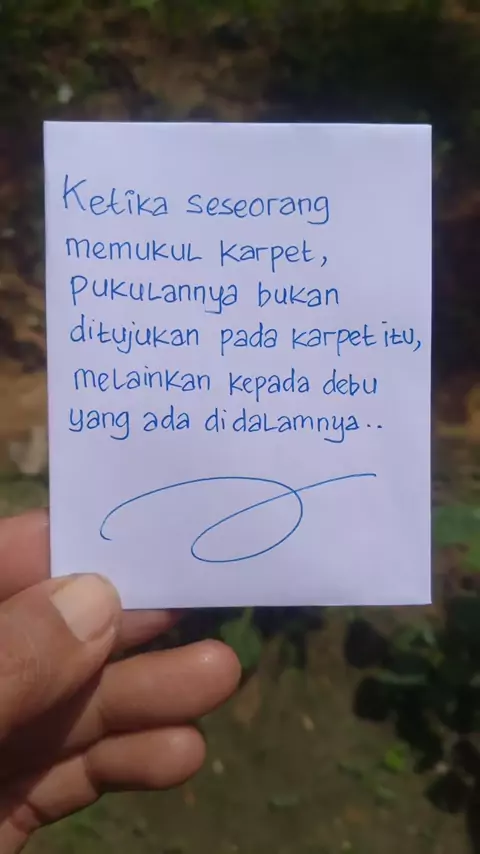 Ketika seseorang
memukul karpet,
pukulannya bukan
ditujukan pada karpet itu,
melainkan kepada debu
yang ada didalamnya..